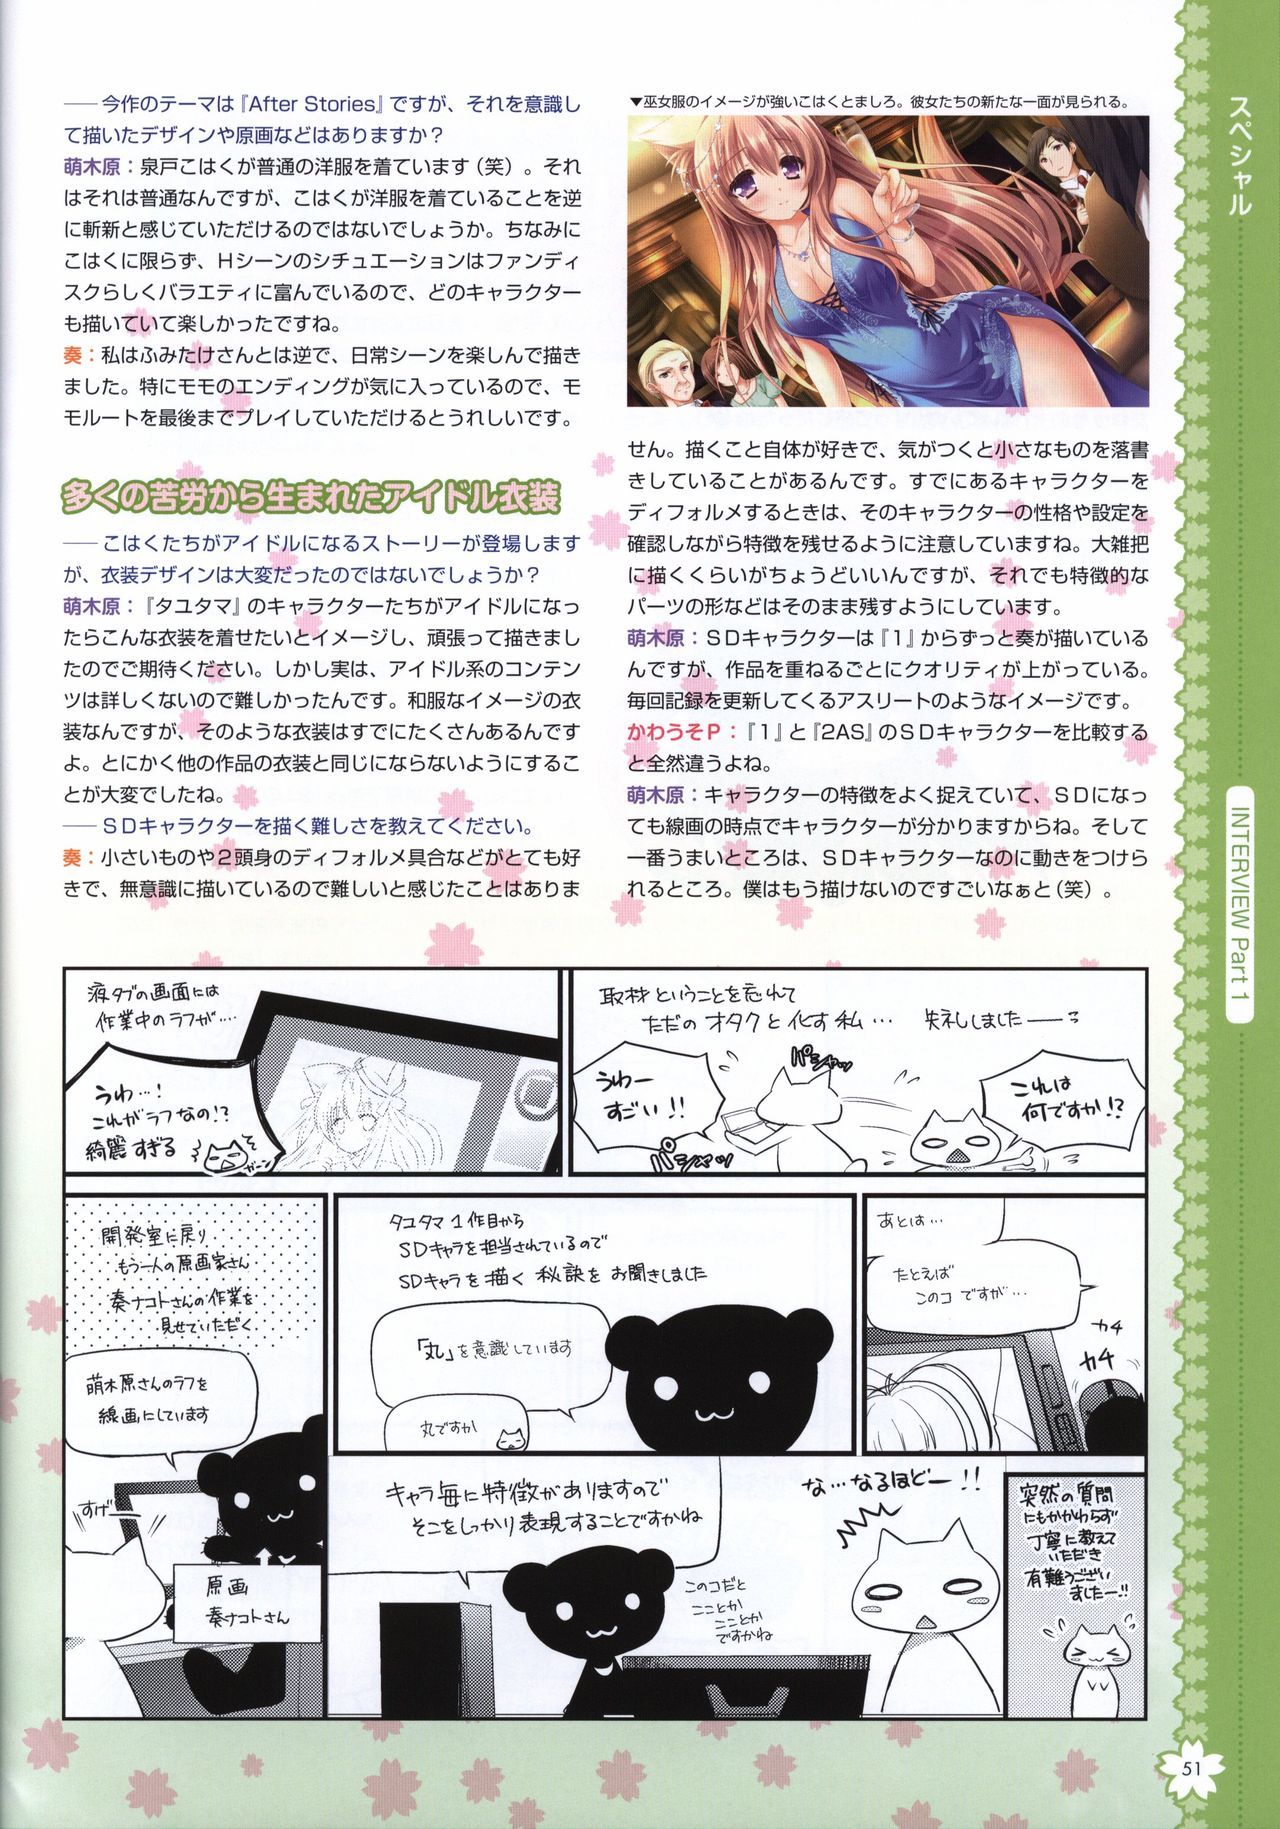 ――今作のテーマは『After Stories』ですが、それを意識し
て描いたデザインや原画などはありますか？
萌木原：泉戸こはくが普通の洋服を着ています（笑）。それ
はそれは普通なんですが、こはくが洋服を着ていることを逆
に斬新と感じていただけるのではないでしょうか。ちなみに
こはくに限らず、Ｈシーンのシチュエーションはファンディ
スクらしくバラエティに富んでいるので、どのキャラクター
も描いていて楽しかったですね。
奏：私はふみたけさんとは逆で、日常シーンを楽しんで描き
ました。特にモモのエンディングが気に入っているので、モ
モルートを最後までプレイしていただけるとうれしいです。
多くの苦労から生まれたアイドル衣装
――こはくたちがアイドルになるストーリーが登場します
が、衣装デザインは大変だったのではないでしょうか？
萌木原：『タユタマ』のキャラクターたちがアイドルになっ
たらこんな衣装を着せたいとイメージし、頑張って描きまし
たのでご期待ください。しかし実は、アイドル系のコンテン
ツは詳しくないので難しかったんです。和服なイメージの衣
装なんですが、そのような衣装はすでにたくさんあるんです
よ。とにかく他の作品の衣装と同じにならないようにするこ
とが大変でしたね。
――ＳＤキャラクターを描く難しさを教えてください。
奏：小さいものや２頭身のディフォルメ具合などがとても好
きで、無意識に描いているので難しいと感じたことはありま
▼巫女服のイメージが強いこはくとましろ。彼女たちの新たな一面が見られる。
せん。描くこと自体が好きで、気がつくと小さなものを落書
きしていることがあるんです。すでにあるキャラクターを
ディフォルメするときは、そのキャラクターの性格や設定を
確認しながら特徴を残せるように注意していますね。大雑把
に描くくらいがちょうどいいんですが、それでも特徴的な
パーツの形などはそのまま残すようにしています。
萌木原：ＳＤキャラクターは『１』からずっと奏が描いている
んですが、作品を重ねるごとにクオリティが上がっている。
毎回記録を更新してくるアスリートのようなイメージです。
かわうそＰ：『１』と『2AS』のＳＤキャラクターを比較する
と全然違うよね。
萌木原：キャラクターの特徴をよく捉えていて、ＳＤになっ
ても線画の時点でキャラクターが分かりますからね。そして
一番うまいところは、ＳＤキャラクターなのに動きをつけら
れるところ。僕はもう描けないのですごいなぁと（笑）。
スペシャル
INTERVIEW Part 1
液タブの画面には
作業中のラフが…
うわ…！
これがラフなの!?
綺麗すぎる
ガーン
取材ということを忘れて
ただのオタクと化す私… 失礼しました――っ
パシャッ
うわー
すごい!!
パシャッ
これは
何ですか!?
開発室に戻り
もう一人の原画家さん
奏ナコトさんの作業を
見せていただく
萌木原さんのラフを
線画にしています
すげー
原画
奏ナコトさん
タユタマ１作目から
SDキャラを担当されているので
SDキャラを描く秘訣をお聞きしました
「丸」を意識しています
丸ですか
あとは…
たとえば
このコですが…
カチ
カチ
キャラ毎に特徴がありますので
そこをしっかり表現することですかね
このコだと
こことか
こことか
ですかね
な…なるほどー!!
突然の質問
にもかかわらず
丁寧に教えて
いただき
有難うござい
ましたー!!
51